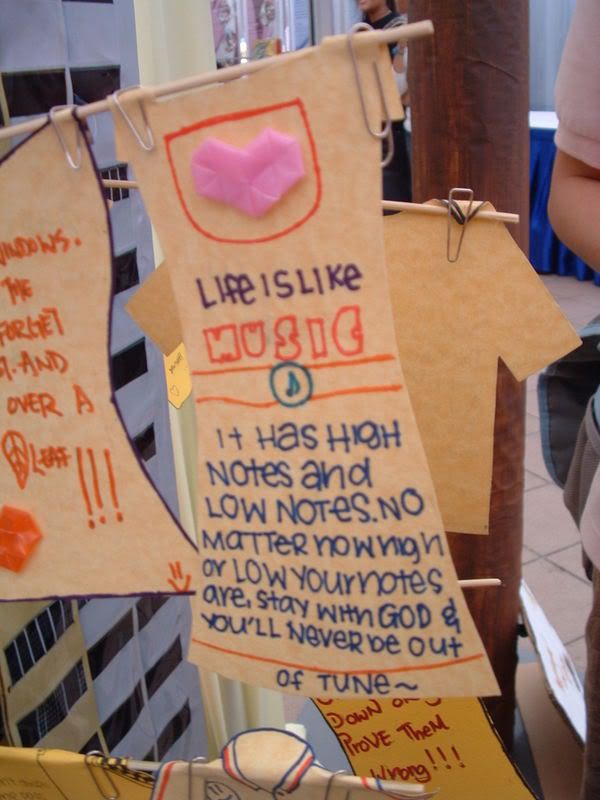 LIFE IS LIKE
MUSIC
IT HAS HIGH
NOTES and
LOW NOTES. NO
MATTER how high
or LOW your notes
are, stay with GOD &
YOU'LL NEVER be out
OF TUNE~
WINDOWS.
THE
FORGET
AND
OVER A
LEAF!!!
DOWN
PROVE THEM
Wrong!!!